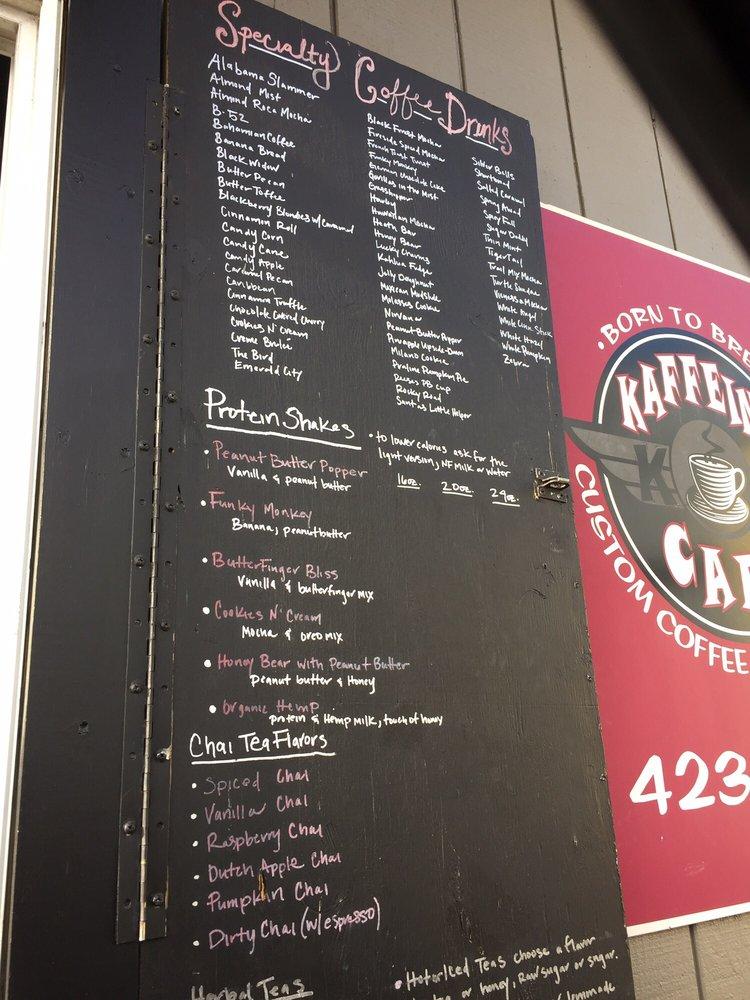 Specialty Coffee Drinks
Alabama Slammer
Almond Mist
Almond Roca Mocha
B-52
Bahamian Coffee
Banana Bread
Black Widow
Butter Pecan
Butter Toffee
Blackberry Blondies w/ Caramel
Cinnamon Roll
Candy Corn
Candy Cane
Candy Apple
Caramel Pecan
Caribbean
Cinnamon Truffle
Chocolate Covered Cherry
Cookies N' Cream
Creme Brulé
The Bird
Emerald City
Black Forest Mocha
Fireside Spiced Mocha
French Toast Twist
Funky Monkey
German Chocolate Cake
Gorillas in the Mist
Grasshopper
Hawaiian Mocha
Heath Bar
Honey Bear
Lucky Charms
Kahlua Fudge
Jelly Doughnut
Mexican Mudslide
Molasses Cookie
Nirvana
Peanut Butter Popper
Pineapple Upside-Down
Milano Cookie
Praline Pumpkin Pie
Reeses PB Cup
Rocky Road
Santa's Little Helper
Silver Bells
Shortbread
Salted Caramel
Spring Ahead
Sugar Daddy
Thin Mint
Tiger Tail
Trail Mix Mocha
Turtle Sundae
White Angel
White Pumpkin
Zebra
Protein Shakes
• to lower calories ask for the
light version, NF Milk or Water
16oz. 20oz. 24oz.
• Peanut Butter Popper
Vanilla & peanut butter
• Funky Monkey
Banana, peanutbutter
• Butterfinger Bliss
Vanilla & butterfinger mix
• Cookies N' Cream
Mocha & oreo mix
• Honey Bear with Peanut Butter
Peanut butter & Honey
• Organic Hemp
protein & Hemp milk, touch of honey
Chai Tea Flavors
• Spiced Chai
• Vanilla Chai
• Raspberry Chai
• Dutch Apple Chai
• Pumpkin Chai
• Dirty Chai (w/espresso)
Herbal Teas
• Hot or Iced Teas choose a flavor
or honey, raw sugar or sugar.
lemonade
• BORN TO BRE
KAFFEIN
K
CA
CUSTOM COFFEE
423